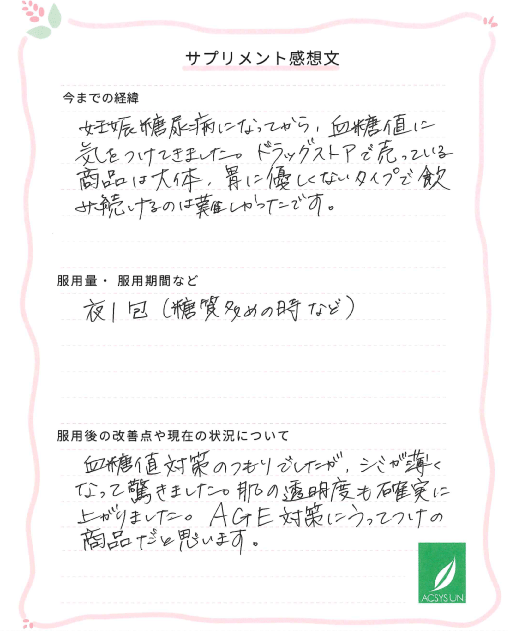 サプリメント感想文
今までの経緯
妊娠糖尿病になってから、血糖値に
気をつけてきました。ドラッグストアで売っている
商品は大体、胃に優しくないタイプで飲
み続けるのは難しかったです。
服用量・服用期間など
夜1包(糖質多めの時など)
服用後の改善点や現在の状況について
血糖値対策のつもりでしたが、シミが薄く
なって驚きました。肌の透明度も確実に
上がりました。AGE対策にうってつけの
商品だと思います。
ACSYS UN